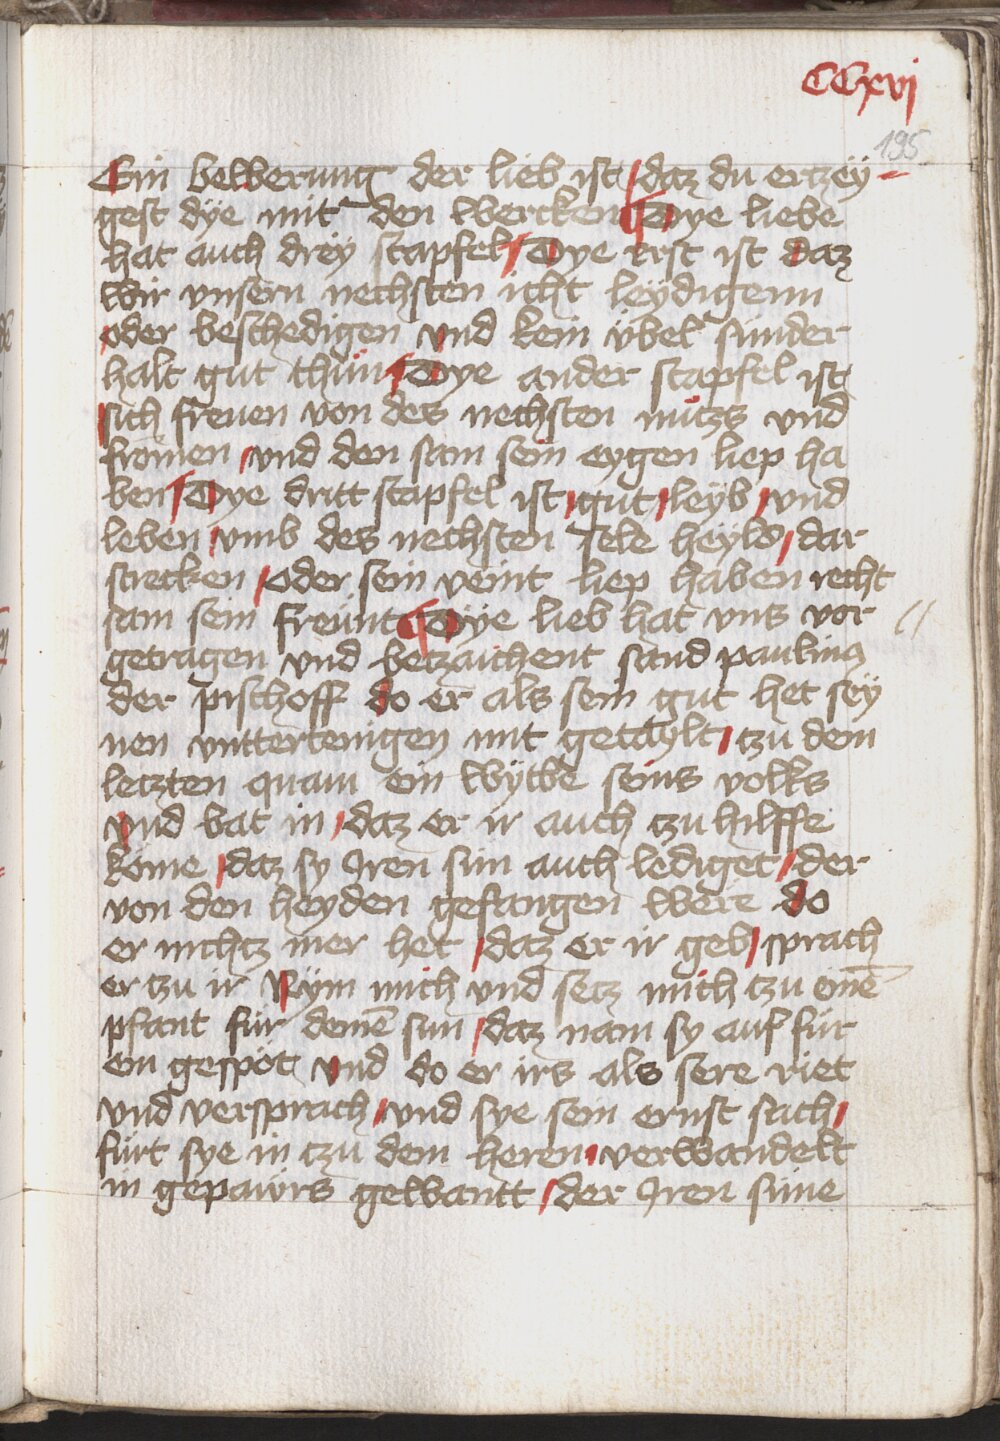 CCxvj
195
Ein bewerung der lieb ist / daz du ertzey=
gest dye mit den wercken ¶ Dye liebe
hat auch drey stapfel / Dye erst ist daz
wir vnsern nechsten icht leydigenn
oder beschedigen vnd kein übel sunder
halt gut thün / Dye ander stapfel ist
sich freuen von des nechsten nutzs vnd
fromen / vnd den sam sein eygen liep ha
ben / Dye dritt stapfel ist / gut / leyb / vnd
leben / vmb des nechsten sele heyls / dar
strecken / oder sein veint liep haben recht
sam sein freunt ¶ Dye lieb hat vns vor
getragen vnd betzaichent sand paulinus
der pischoff do er als sein gut het sey
nen vntertenigen mit getaylt / tzu dem
letzten quam ein wytbe seins volks
vnd bat in / daz er ir auch tzu hilffe
köme / daz sy Jren sun auch lediget / der
von den heyden gefangen were do
er nichtz mer het / daz er ir geb / sprach
er tzu ir Nym mich vnd setz mich tzu einē
pfant für deinē sun / daz nam sy auf für
ein gespöt vnd do er irs als sere riet
vnd versprach / vnd sye sein ernst sach /
fürt sye in tzu dem heren / verwandelt
in gepawrs gewantt / der Jren sune